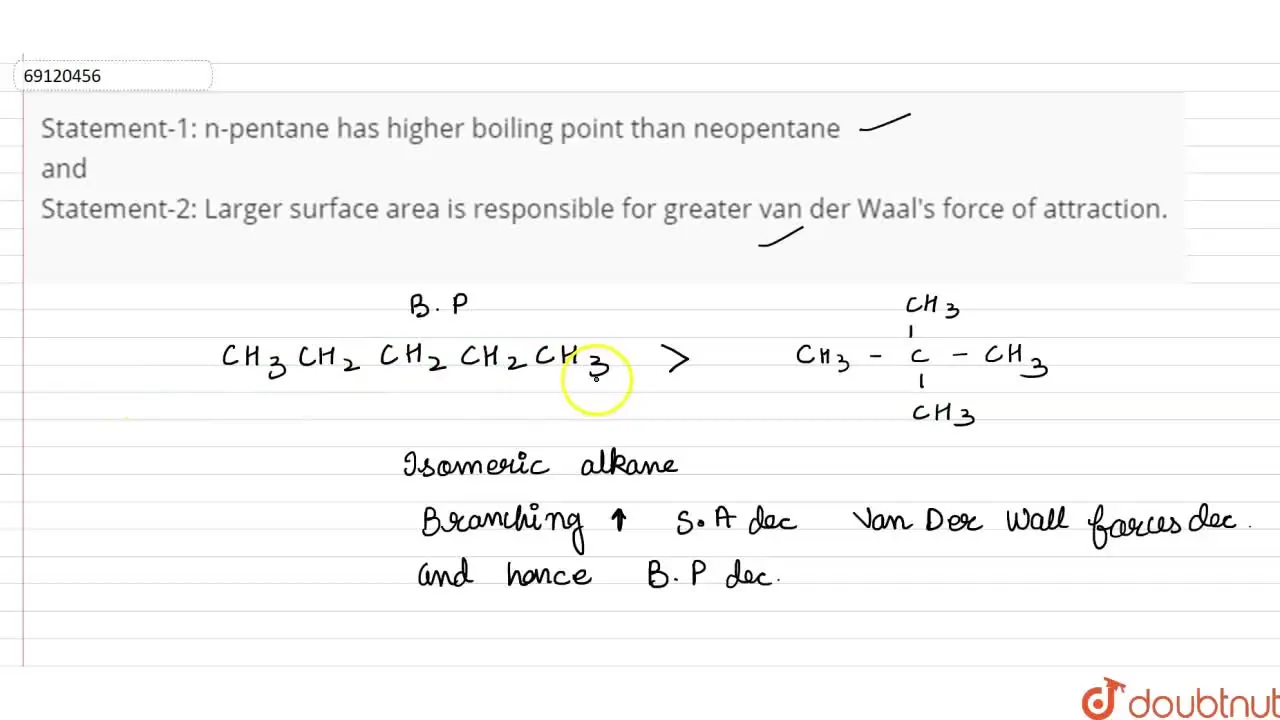 69120456
Statement-1: n-pentane has higher boiling point than neopentane
and
Statement-2: Larger surface area is responsible for greater van der Waal's force of attraction.
B.P
CH3
CH3 CH2 CH2 CH2 CH3 > CH3 - C - CH3
CH3
Isomeric alkane
Branching ↑ S.A dec Van Der Wall forces dec.
and hence B.P dec.
doubtnut